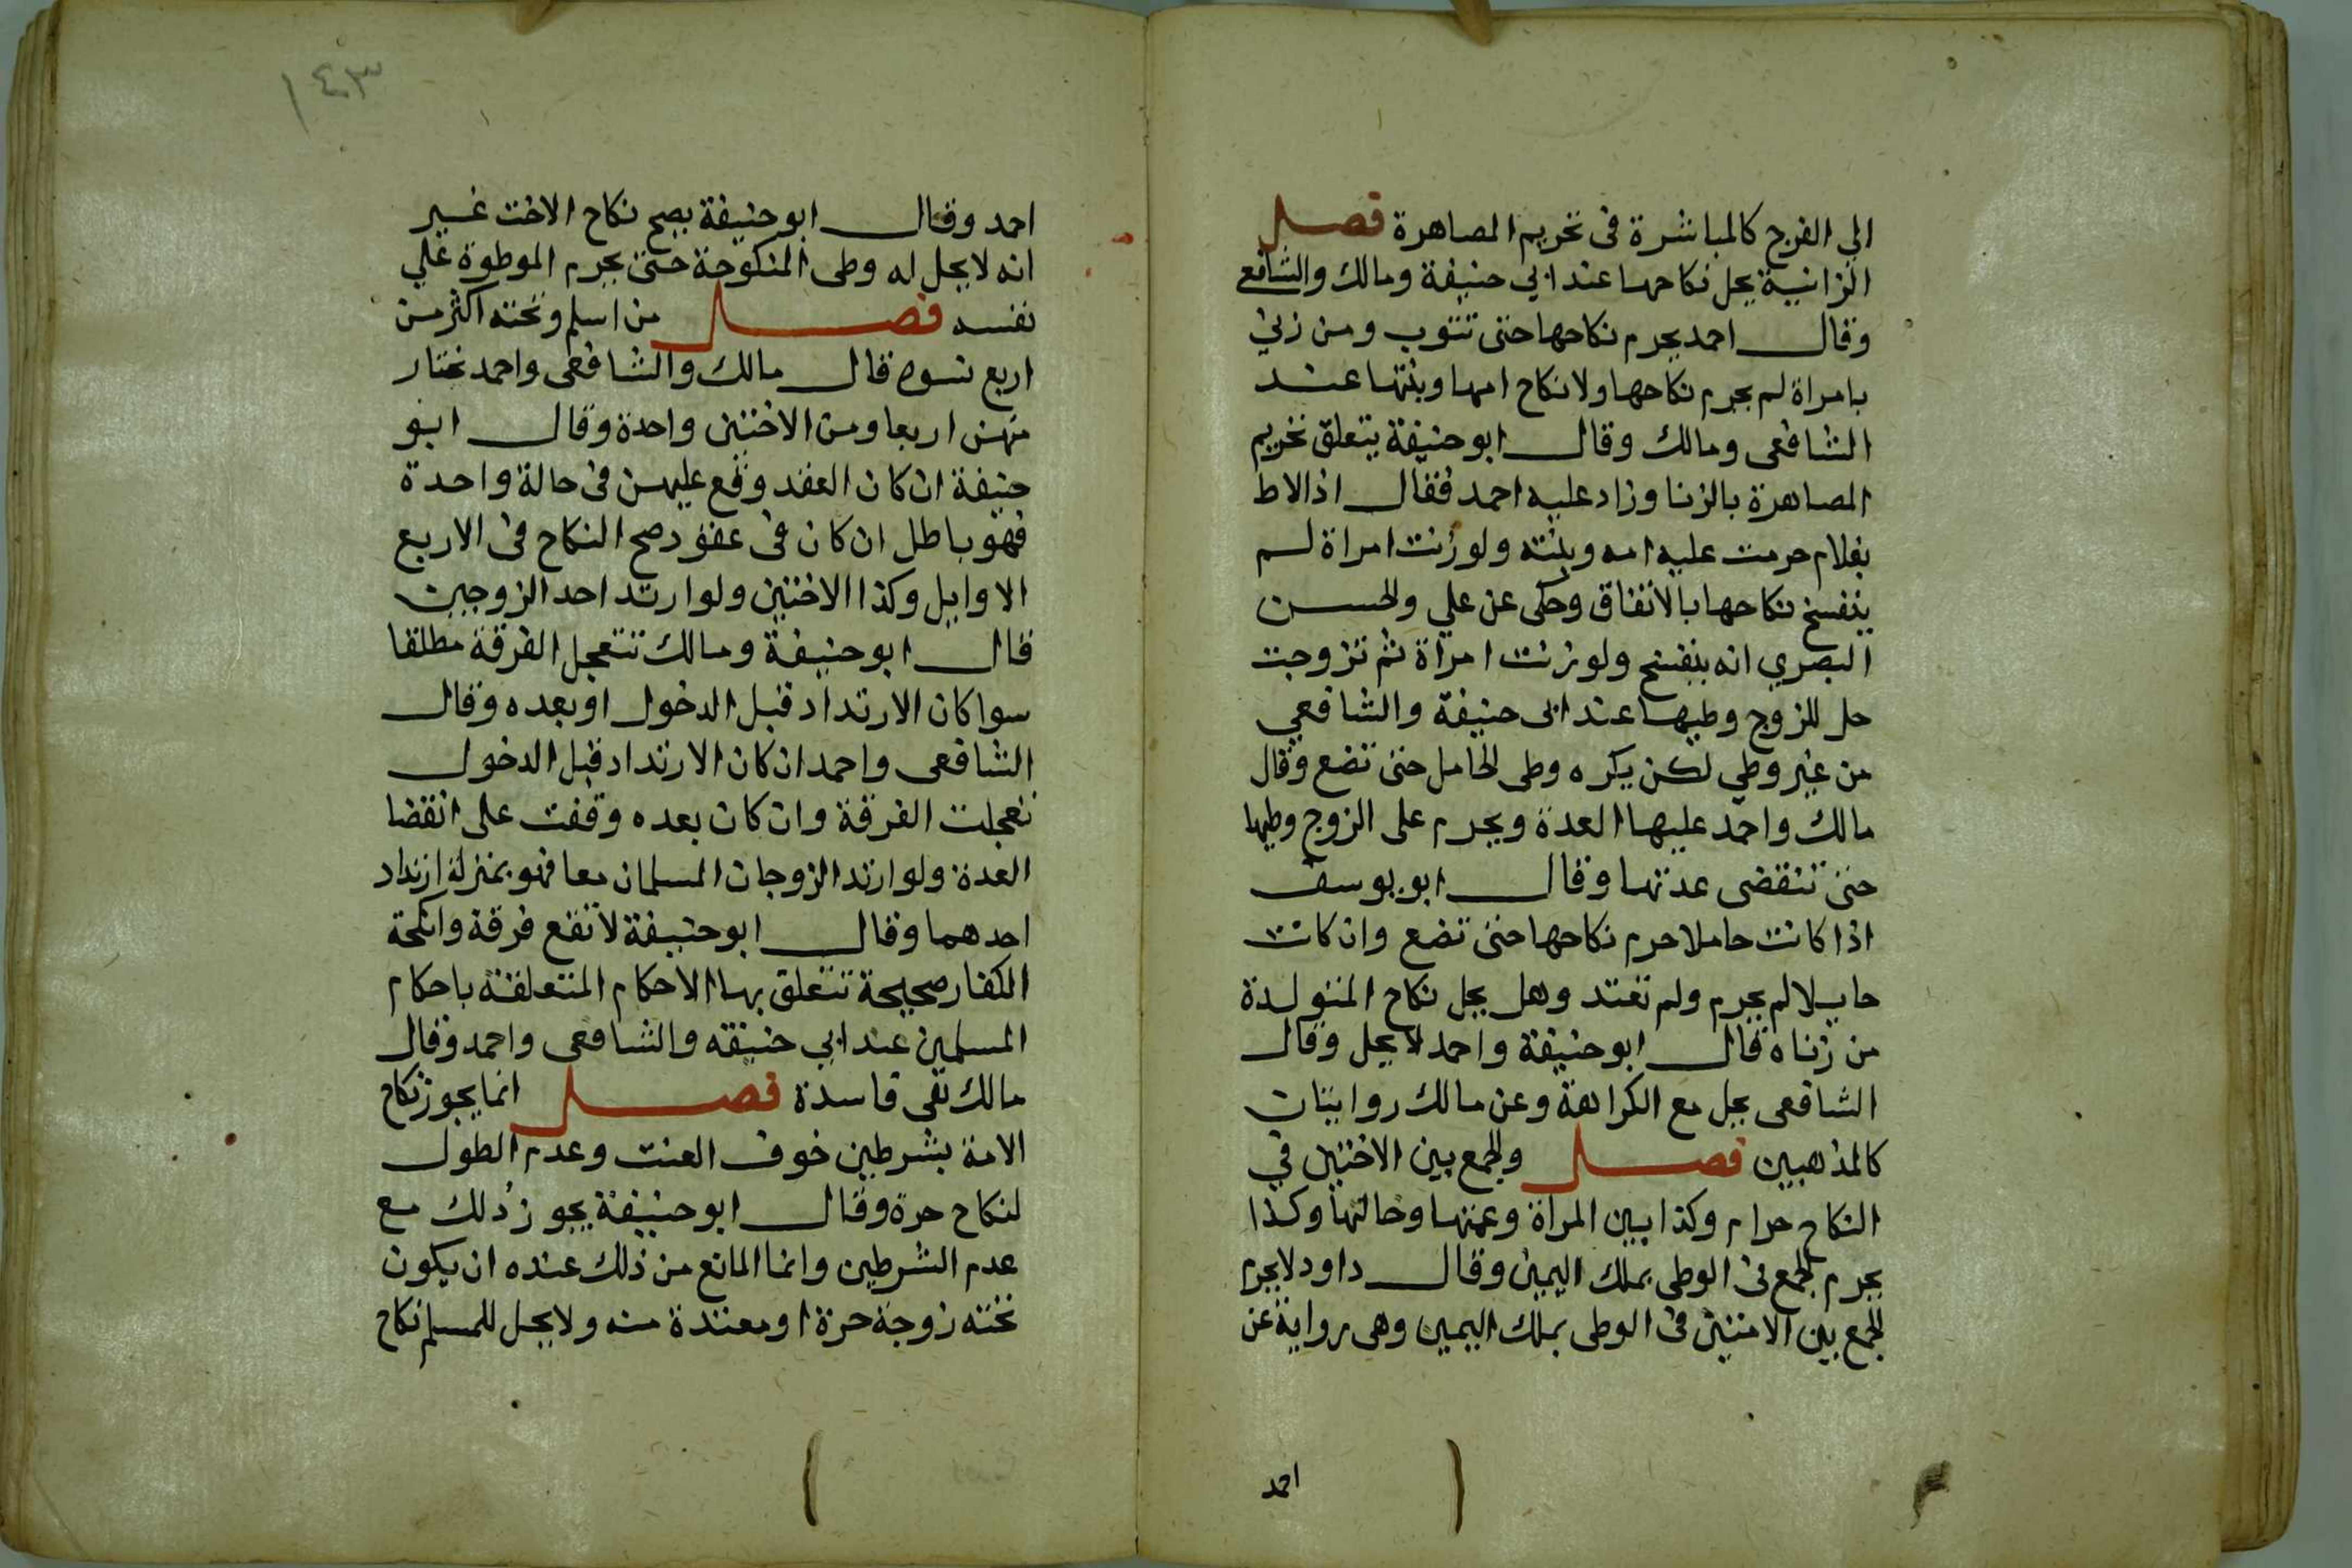 الي الفرج كالمباشرة فى تحريم المصاهرة فصل
الزانية يحل نكاحها عند ابي حنيفة ومالك والشافع
وقال احمد يحرم نكاحها حتى تتوب ومن زني
بامراة لم يحرم نكاحها ولا نكاح امها وبنتها عند
الشافعى ومالك وقال ابو حنيفة يتعلق تحريم
المصاهرة بالزنا وزاد عليه احمد فقال اذا لاط
بغلام حرمت عليه امه وبنته ولو زنت امراة لم
ينفسخ نكاحها بالاتفاق وحكى عن علي والحسن
البصري انه ينفسخ ولو زنت امراة ثم تزوجت
حل للزوج وطيها عند ابى حنيفة والشافعي
من غير وطي لكن يكره وطى الحامل حتى تضع وقال
مالك واحمد عليها العدة ويحرم على الزوج وطيها
حتى تنقضى عدتها وقال ابو يوسف
اذا كانت حاملا حرم نكاحها حتى تضع وان كانت
حايلا لم يحرم ولم تعتد وهل يحل نكاح المتولدة
من زناه قال ابو حنيفة واحمد لا يحل وقال
الشافعى يحل مع الكراهة وعن مالك روايتان
كالمذهبين فصل والجمع بين الاختين في
النكاح حرام وكذا بين المراة وعمتها وخالتها وكذا
يحرم الجمع فى الوطى بملك اليمين وقال داود لا يحرم
الجمع بين الاختين فى الوطى بملك اليمين وهى رواية عن
احمد
١٤٣
احمد وقال ابو حنيفة يصح نكاح الاخت غير
انه لا يحل له وطى المنكوحة حتى يحرم الموطوة علي
نفسه فصل من اسلم وتحته اكثر من
اربع نسوه قال مالك والشافعى واحمد تختار
منهن اربعا ومن الاختين واحدة وقال ابو
حنيفة ان كان العقد وقع عليهن فى حالة واحدة
فهو باطل ان كان فى عقود صح النكاح فى الاربع
الاوايل وكذا الاختين ولو ارتد احد الزوجين
قال ابو حنيفة ومالك تتعجل الفرقة مطلقا
سوا كان الارتداد قبل الدخول او بعده وقال
الشافعى واحمد ان كان الارتداد قبل الدخول
تعجلت الفرقة وان كان بعده وقفت على انقضا
العدة ولو ارتد الزوجان المسلمان معا فهو بمنزلة ارتداد
احدهما وقال ابو حنيفة لا تقع فرقة وانكحة
الكفار صحيحة تتعلق بها الاحكام المتعلقة باحكام
المسلمين عند ابي حنيفه والشافعى واحمد وقال
مالك تقى فاسدة فصل انما يجوز نكاح
الامة بشرطين خوف العنت وعدم الطول
لنكاح حرة وقال ابو حنيفة يجوز ذلك مع
عدم الشرطين وانما المانع من ذلك عنده ان يكون
تحته زوجة حرة او معتدة منه ولا يحل للمسلم نكاح